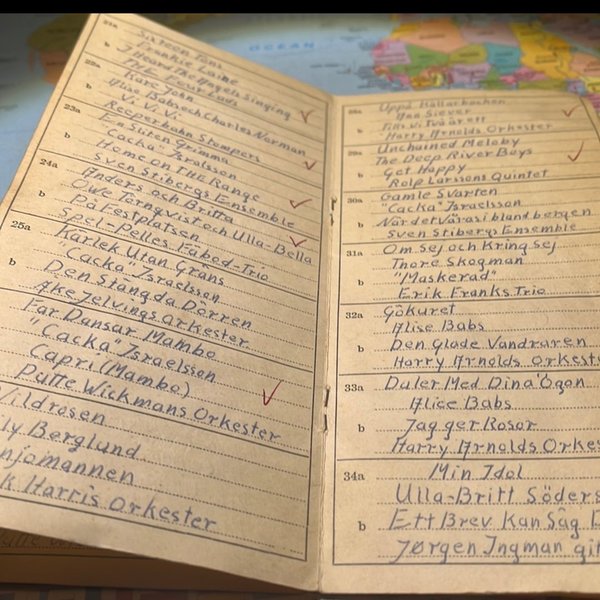 21a Sixteen Tons
Frankie Laine
b I Heard The Angels Singing
The Four Lads
22a Karl John
Alise Babsoch Charles Norman
b Vi. Vi. Vi
Reeperbahn Stompers
23a En Sluten Grimma
"Cacka" Israelsson
b Home on THE Range
Sven Stibergs Ensemble
24a Anders och Britta
Owe Törnqvist och Ulla-Bella
b På Festplatsen
Spel-Pelles Fäbod-Trio
25a Kärlek Utan Gräns
"Cacka" Israelsson
b Den Stängda Dörren
Åke Jelvings Orkester
Far Dansar Mambo
"Cacka" Israelsson
Capri (Mambo)
Putte Wickmans Orkester
Vildrosen
ly Berglund
njomannen
k Harris Orkester
28a Uppå Källarbacken
Siever
b Tills Vi Två är ett
Harry Arnolds Orkester
29a Unchained Meloby
The Deep River Boys
b Get Happy
Rolf Larssons Quintet
30a Gamle Svarten
"Cacka" Israelsson
b När det våras i bland bergen
Sven Stibergs Ensemble
31a Om Sej och Kring Sej
Thore Skogman
b "Maskerad"
Erik Franks Trio
32a Gökuret
Alise Babs
b Den Glade Vandraren
Harry Arnolds Orkeste
33a Duler Med Dina Ögon
Alice Babs
b Jag ger Rosor
Harry Arnolds Orkes
34a Min Idol
Ulla-Britt Söders
b Ett Brev Kan Säg
Jørgen Ingman git
OCEAN